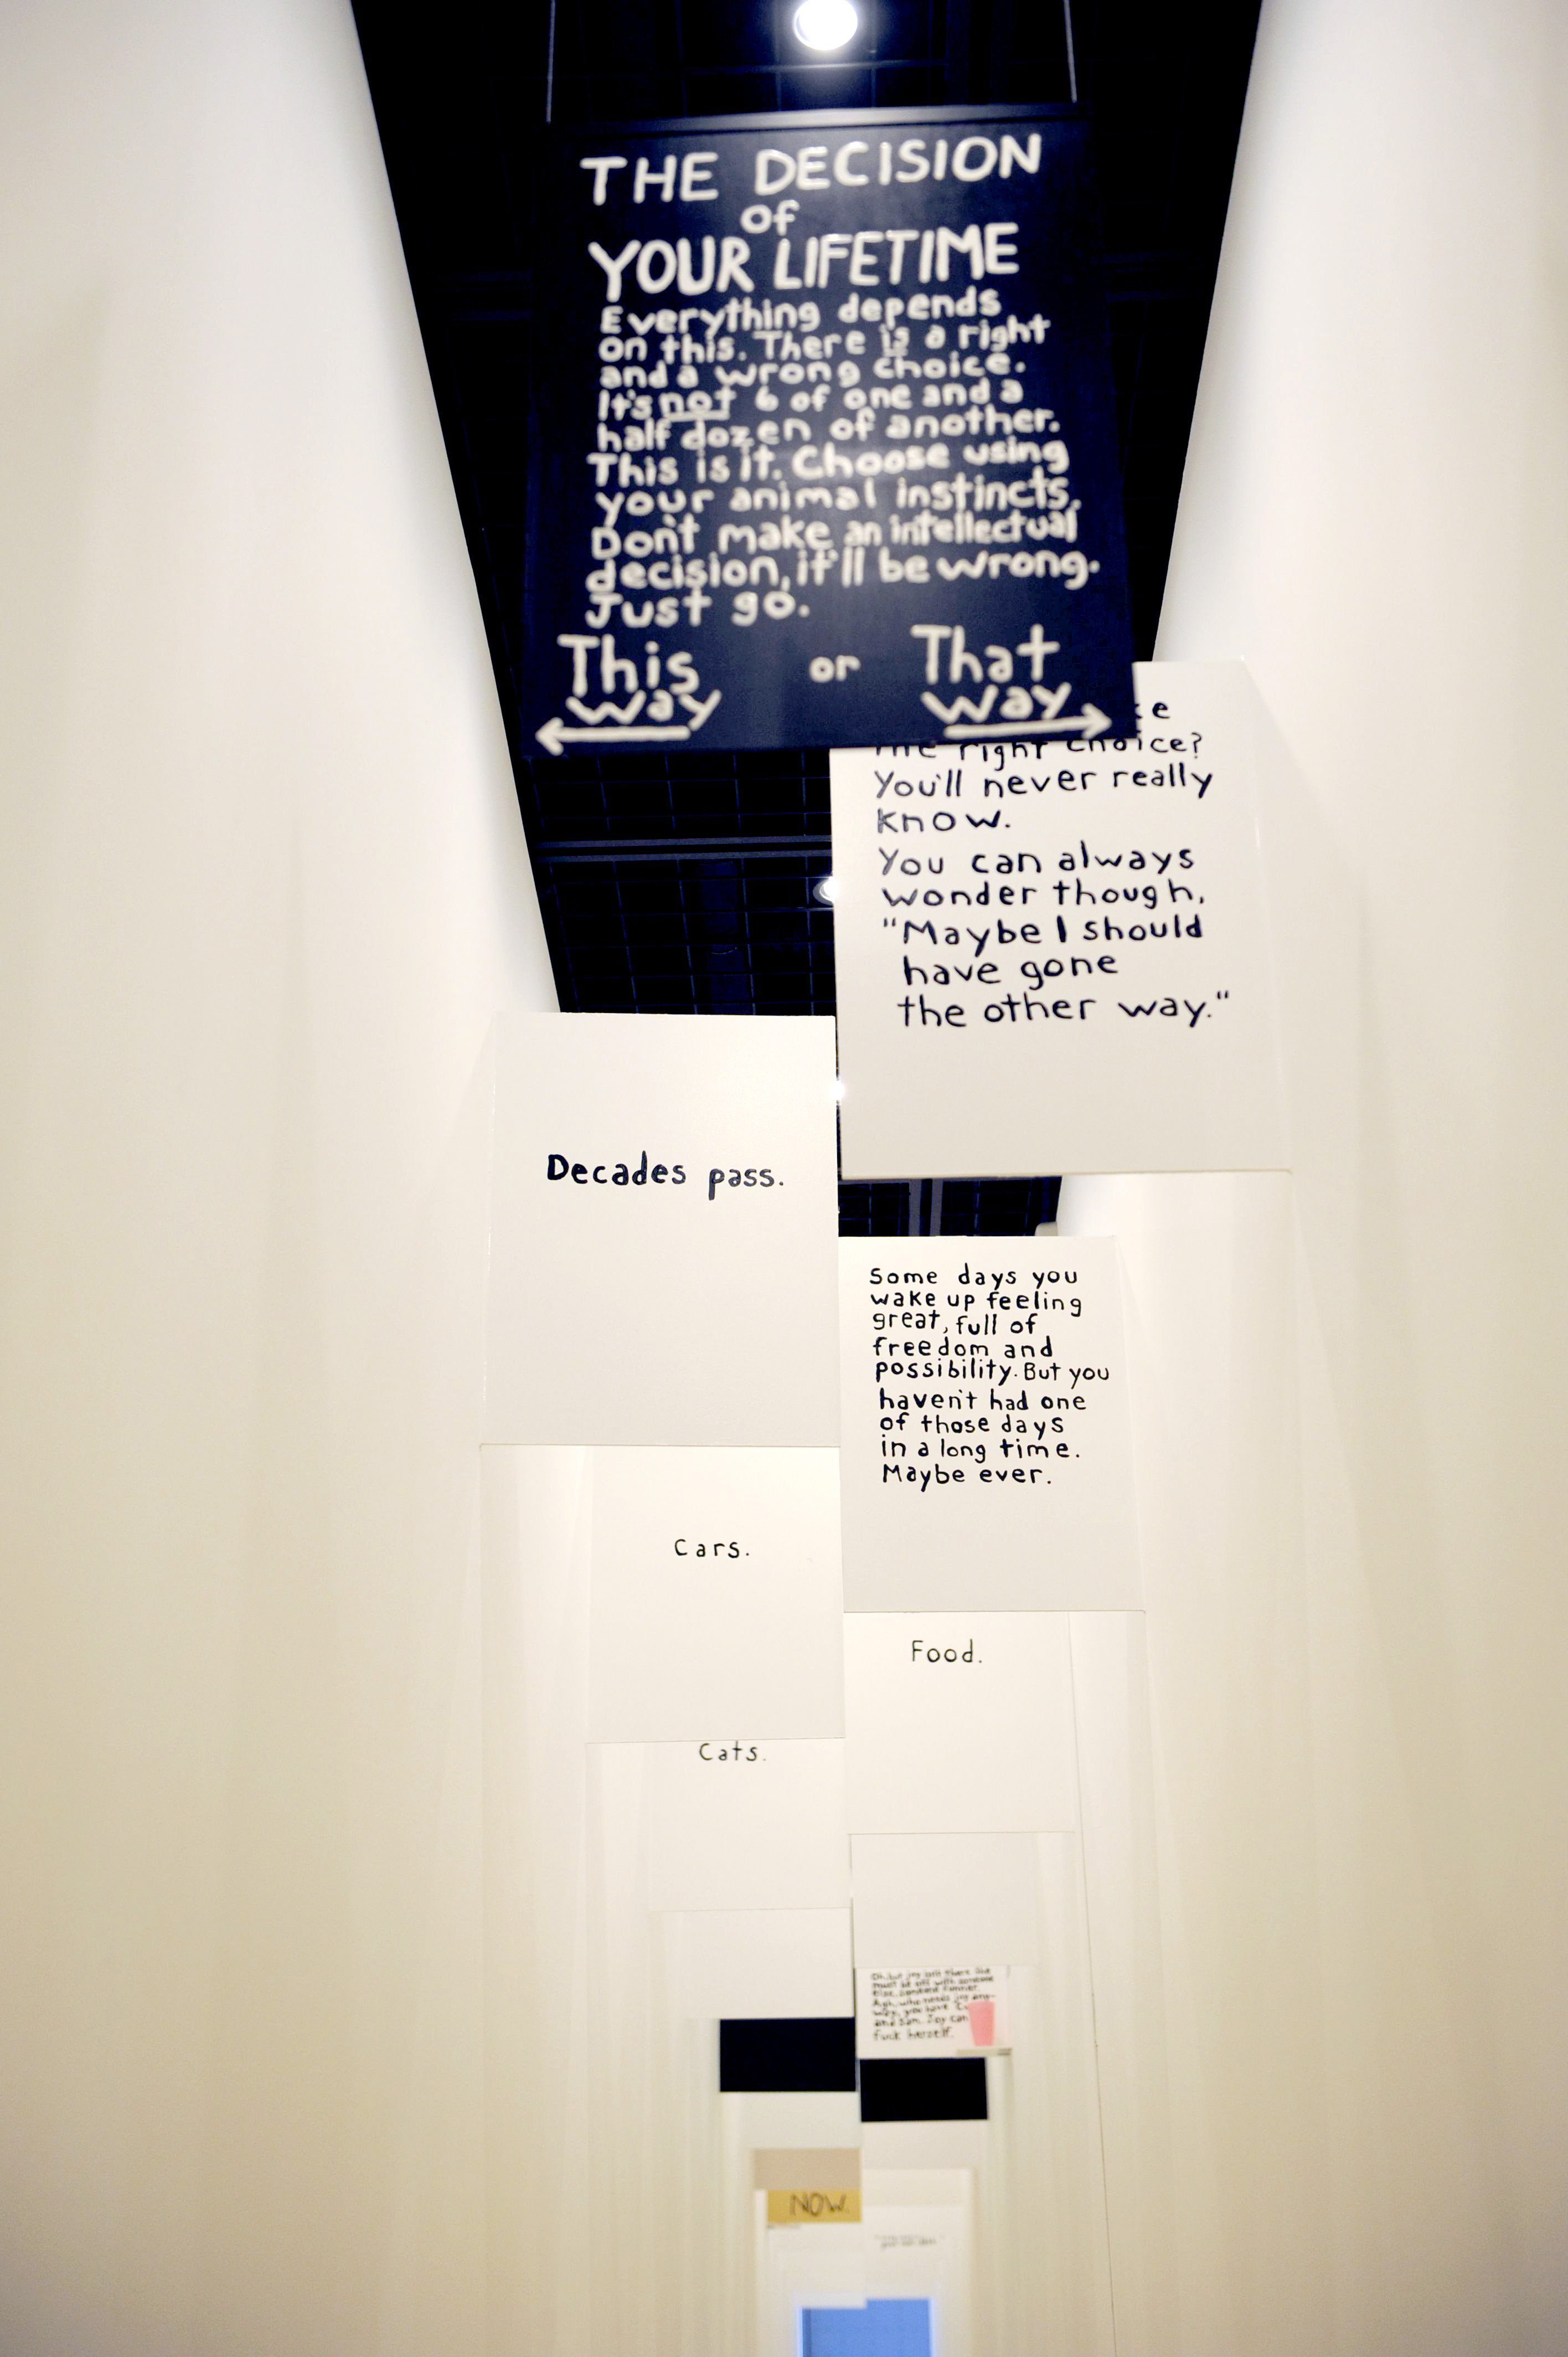 THE DECISION
of
YOUR LIFETIME
Everything depends
on this. There is a right
and a wrong choice.
It's not 6 of one and a
half dozen of another.
This is it. Choose using
your animal instincts.
Don't make an intellectual
decision, it'll be wrong.
Just go.
This or That
way way
the right choice?
You'll never really
know.
You can always
wonder though,
"Maybe I should
have gone
the other way."
Decades pass.
Some days you
wake up feeling
great, full of
freedom and
possibility. But you
haven't had one
of those days
in a long time.
Maybe ever.
Cars.
Food.
Cats.
Oh, but joy isn't there. She
must be off with someone
else, someone funnier.
Agh, who needs joy any-
way, you have
and Sam. Joy can
fuck herself.
NOW.